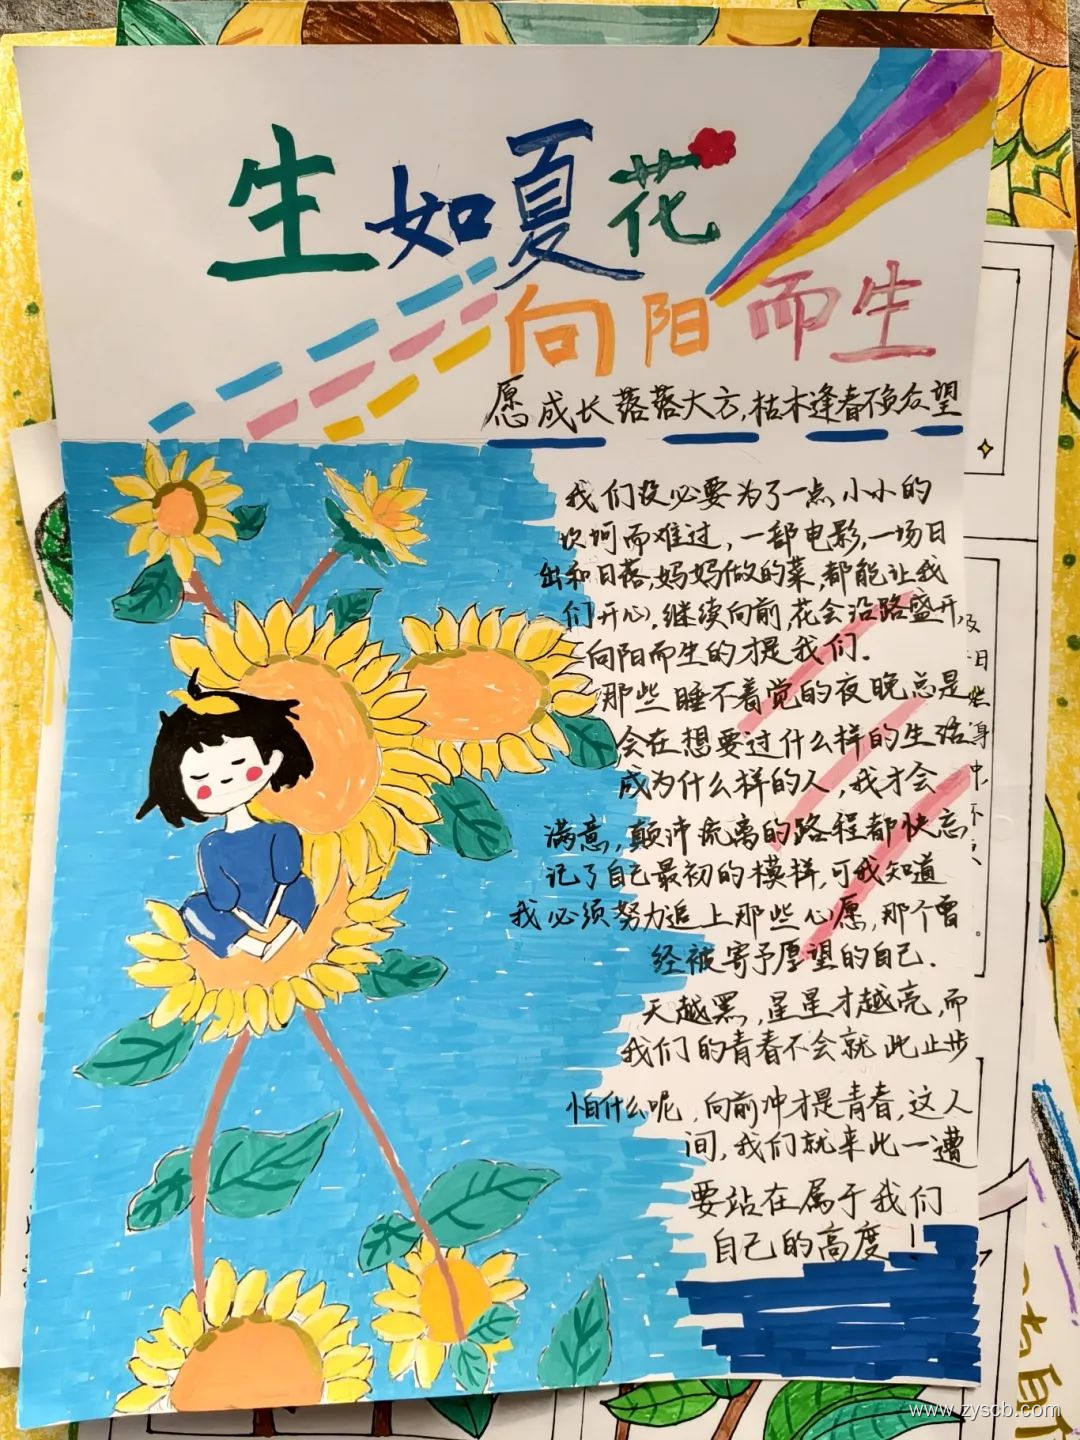 生如夏花
向阳而生
愿成长落落大方,枯木逢春不负众望
我们没必要为了一点小小的
坎坷而难过,一部电影,一场日
出和日落,妈妈做的菜,都能让我
们开心,继续向前,花会沿路盛开,
向阳而生的才是我们.
那些睡不着觉的夜晚总是
会在想要过什么样的生活
成为什么样的人,我才会
满意,颠沛流离的路程都快忘
记了自己最初的模样,可我知道
我必须努力追上那些心愿,那个曾
经被寄予厚望的自己.
天越黑,星星才越亮,而
我们的青春不会就此止步
怕什么呢,向前冲才是青春,这人
间,我们就来此一遭
要站在属于我们
自己的高度!
www.zyscb.com